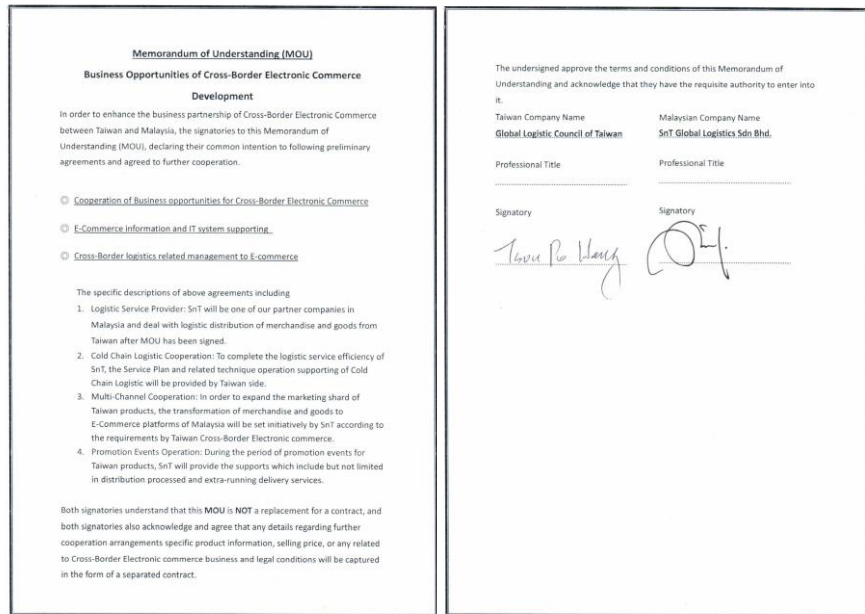 Memorandum of Understanding (MOU)
Business Opportunities of Cross-Border Electronic Commerce
Development
In order to enhance the business partnership of Cross-Border Electronic Commerce
between Taiwan and Malaysia, the signatories to this Memorandum of
Understanding (MOU), declaring their common intention to following preliminary
agreements and agreed to further cooperation.
◎ Cooperation of Business opportunities for Cross-Border Electronic Commerce
◎ E-Commerce information and IT system supporting
◎ Cross-Border logistics related management to E-commerce
The specific descriptions of above agreements including
1. Logistic Service Provider: SnT will be one of our partner companies in
Malaysia and deal with logistic distribution of merchandise and goods from
Taiwan after MOU has been signed.
2. Cold Chain Logistic Cooperation: To complete the logistic service efficiency of
SnT, the Service Plan and related technique operation supporting of Cold
Chain Logistic will be provided by Taiwan side.
3. Multi-Channel Cooperation: In order to expand the marketing shard of
Taiwan products, the transformation of merchandise and goods to
E-Commerce platforms of Malaysia will be set initiatively by SnT according to
the requirements by Taiwan Cross-Border Electronic commerce.
4. Promotion Events Operation: During the period of promotion events for
Taiwan products, SnT will provide the supports which include but not limited
in distribution processed and extra-running delivery services.
Both signatories understand that this MOU is NOT a replacement for a contract, and
both signatories also acknowledge and agree that any details regarding further
cooperation arrangements specific product information, selling price, or any related
to Cross-Border Electronic commerce business and legal conditions will be captured
in the form of a separated contract.
The undersigned approve the terms and conditions of this Memorandum of
Understanding and acknowledge that they have the requisite authority to enter into
it.
Taiwan Company Name Malaysian Company Name
Global Logistic Council of Taiwan SnT Global Logistics Sdn Bhd.
Professional Title Professional Title
Signatory Signatory